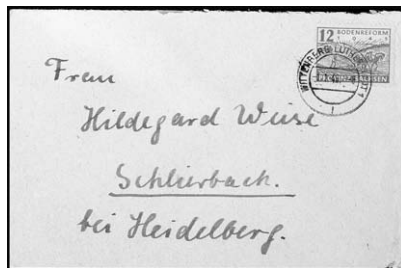 12 BODENREFORM
1945
WITTENBERG LUTHERSTADT 1
Frau
Hildegard Weise
Schlierbach.
bei Heidelberg.